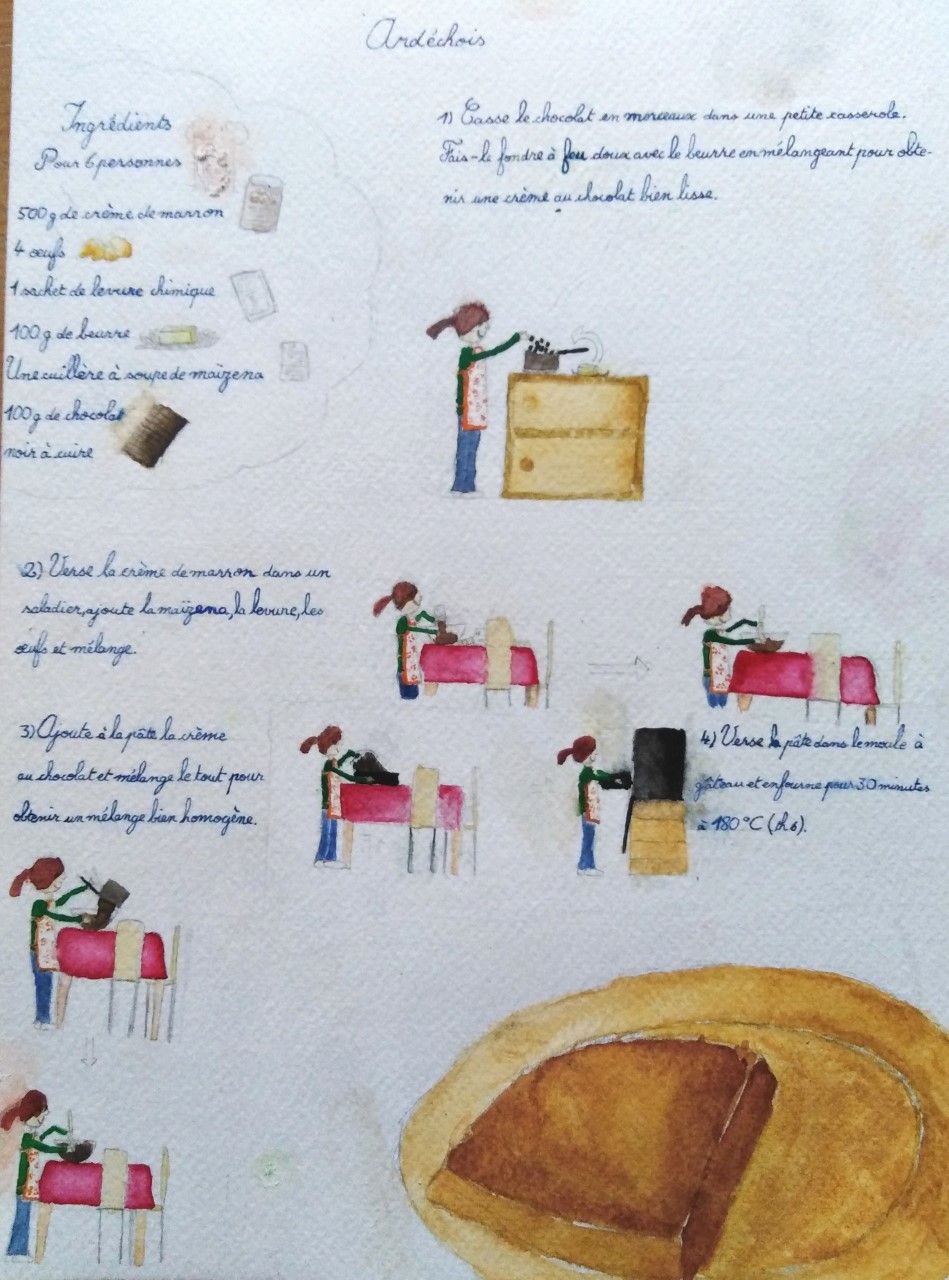 Ardéchois
Ingrédients
Pour 6 personnes
500g de crème de marron
4 œufs
1 sachet de levure chimique
100g de beurre
Une cuillère à soupe de maïzena
100g de chocolat
noir à cuire
1) Casse le chocolat en morceaux dans une petite casserole.
Fais-le fondre à feu doux avec le beurre en mélangeant pour obte-
nir une crème au chocolat bien lisse.
2) Verse la crème de marron dans un
saladier, ajoute la maïzena, la levure, les
œufs et mélange.
3) Ajoute à la pâte la crème
au chocolat et mélange le tout pour
obtenir un mélange bien homogène.
4) Verse la pâte dans le moule à
gâteau et enfourne pour 30 minutes
à 180°C (th 6).